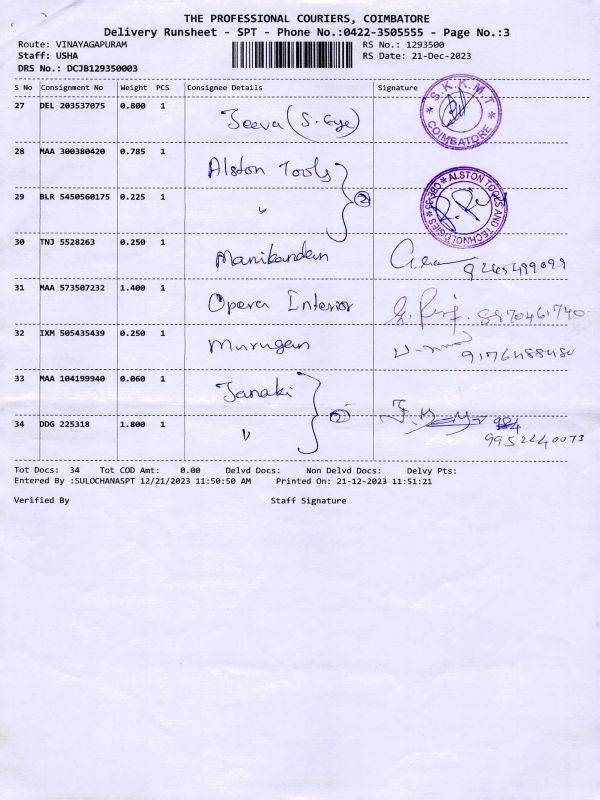 THE PROFESSIONAL COURIERS, COIMBATORE
Delivery Runsheet - SPT - Phone No.:0422-3505555 - Page No.:3
Route: VINAYAGAPURAM RS No.: 1293500
Staff: USHA RS Date: 21-Dec-2023
DRS No.: DCJB129350003
S No Consignment No Weight PCS Consignee Details Signature
27 DEL 203537075 0.800 1 Jeeva (S. Eye) S.K.K.M.T COIMBATORE
28 MAA 300380420 0.785 1 Alston Tools
29 BLR 5450560175 0.225 1 " 2 ALSTON TOOLS AND TECHNOLOGIES CBE-35
30 TNJ 5528263 0.250 1 Manikandan 9245499099
31 MAA 573507232 1.400 1 Opera Interior 8870461740
32 IXM 505435439 0.250 1 Murugan
33 MAA 104199940 0.060 1 Janaki
34 DDG 225318 1.800 1 " 2 9952240073
Tot Docs: 34 Tot COD Amt: 0.00 Delvd Docs: Non Delvd Docs: Delvy Pts:
Entered By :SULOCHANASPT 12/21/2023 11:50:50 AM Printed On: 21-12-2023 11:51:21
Verified By Staff Signature